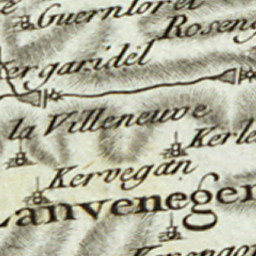 Guernlores
Roseng
ergaridel
la Villeneuve
Kerle
Kervegan
Lanveneger